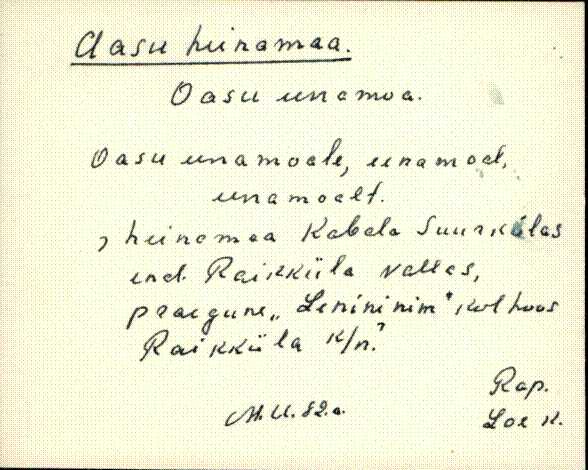 Aasu heinamaa.
Oasu einamoa.
Oasu einamoale, einamoal,
einamoalt.
, heinamaa Kabala Suurkülas
end. Raikküla vallas,
praegune „Lenininim" kolhoos
Raikküla k/n.
M.U. 82.a.
Rap.
Loe k.